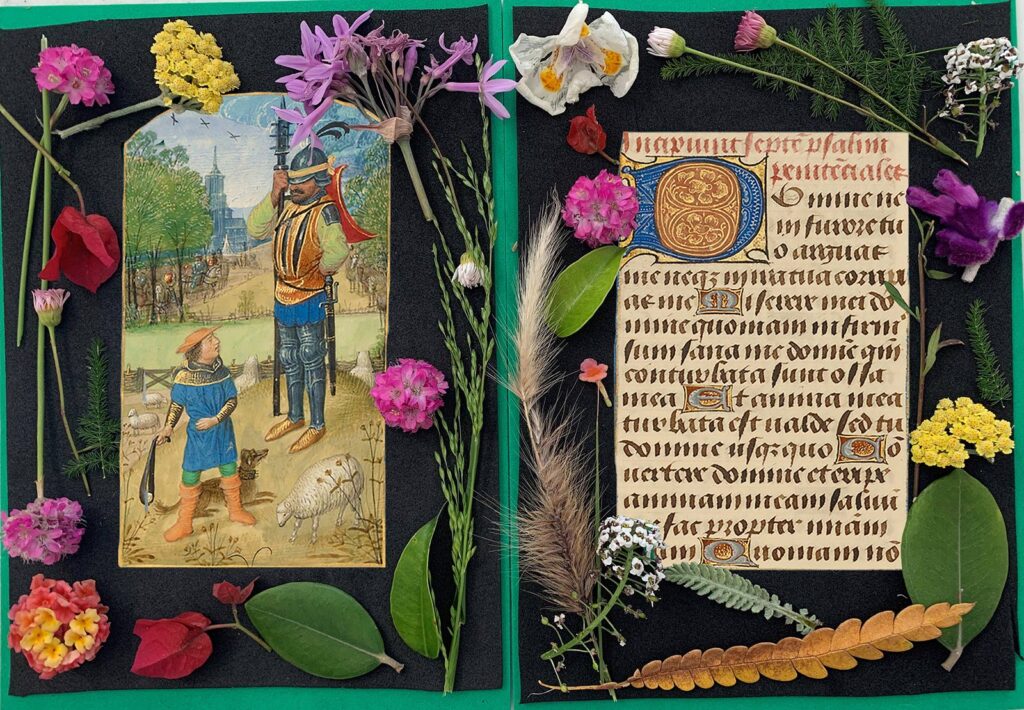 Incipiunt septē psalmi
penitēciales
Domine ne
in furore tu
o arguas
me neqȝ in ira tua corripi
as me Miserere mei do
mine quoniam infirmꝰ
sum sana me domīe qm̄
conturbata sunt ossa
mea Et anima mea
turbata est ualde sed tu
domine usqȝ quo Cō
uertere domine et eripe
animam meam saluū
fac propter miām
Quoniam nō